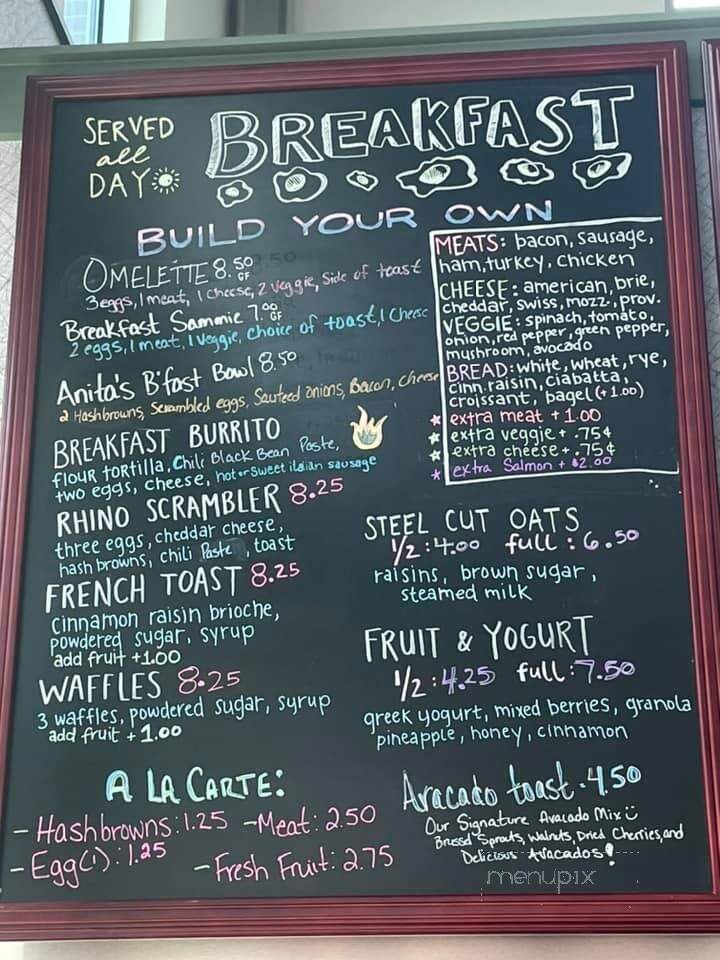 SERVED
all
DAY
BREAKFAST
BUILD YOUR OWN
OMELETTE 8.50
GF
3 eggs, 1 meat, 1 cheese, 2 veggie, Side of toast
Breakfast Sammie 7.00
GF
2 eggs, 1 meat, 1 veggie, choice of toast, 1 Cheese
Anita's B'fast Bowl 8.50
2 Hashbrowns, Scrambled eggs, Sauteed onions, Bacon, cheese
BREAKFAST BURRITO
flour tortilla, Chili Black Bean Paste,
two eggs, cheese, hot or sweet italian sausage
RHINO SCRAMBLER 8.25
three eggs, cheddar cheese,
hash browns, chili Paste, toast
FRENCH TOAST 8.25
Cinnamon raisin brioche,
powdered sugar, syrup
add fruit +1.00
WAFFLES 8.25
3 waffles, powdered sugar, syrup
add fruit + 1.00
MEATS: bacon, sausage,
ham, turkey, chicken
CHEESE: american, brie,
cheddar, swiss, mozz, prov.
VEGGIE: spinach, tomato,
onion, red pepper, green pepper,
mushroom, avocado
BREAD: white, wheat, rye,
cinn. raisin, ciabatta,
croissant, bagel (+1.00)
extra meat + 1.00
extra veggie + .75¢
extra cheese + .75¢
extra Salmon + $2.00
STEEL CUT OATS
1/2 : 4.00 full : 6.50
raisins, brown sugar,
steamed milk
FRUIT & YOGURT
1/2 : 4.25 full : 7.50
greek yogurt, mixed berries, granola
pineapple, honey, cinnamon
A LA CARTE:
- Hashbrowns: 1.25 - Meat: 2.50
- Egg (1): 1.25 - Fresh Fruit: 2.75
Avacado toast - 4.50
Our Signature Avacado Mix
Brussel Sprouts, Walnuts, Dried Cherries, and
Delicious Avacados!
menupix